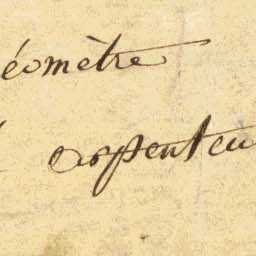 éomètre
arpenteu